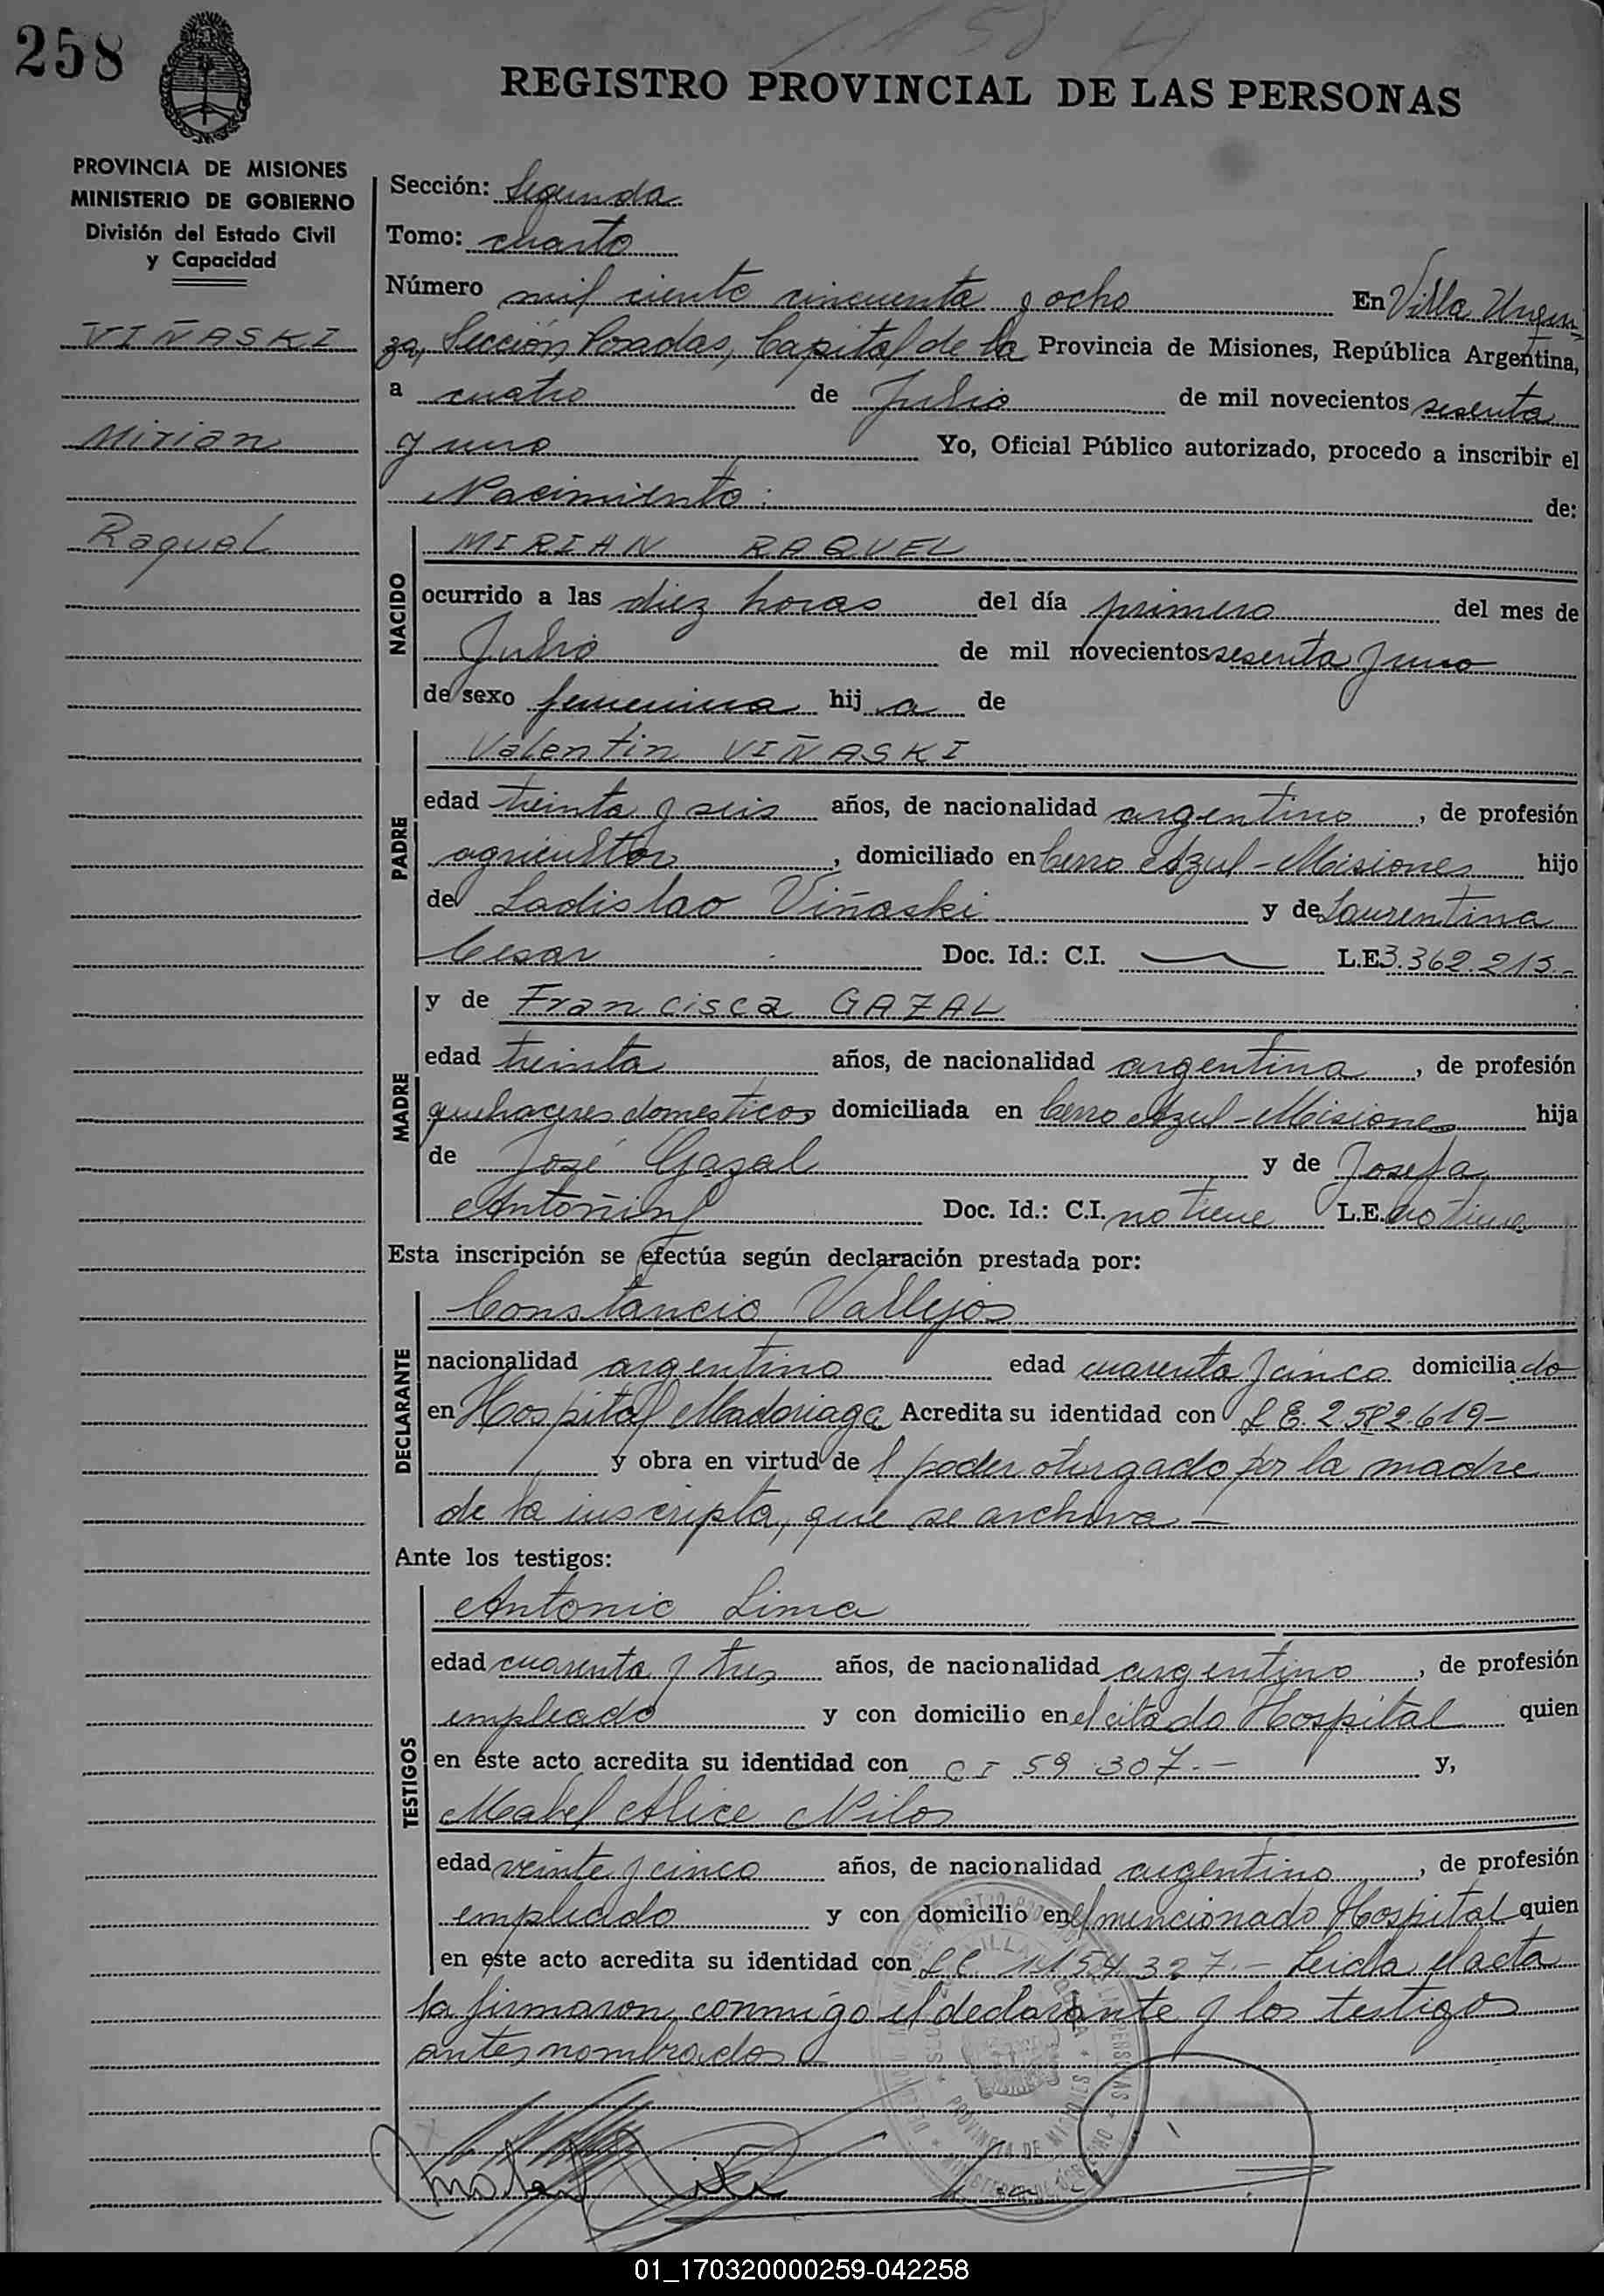 258
REGISTRO PROVINCIAL DE LAS PERSONAS
PROVINCIA DE MISIONES
MINISTERIO DE GOBIERNO
División del Estado Civil
y Capacidad
VIÑASKI
Mirian
Raquel
Sección: Segunda
Tomo: cuarto
Número mil ciento cincuenta y ocho En Villa Urqui-
za, Sección Posadas, Capital de la Provincia de Misiones, República Argentina,
a cuatro de Julio de mil novecientos sesenta
y uno Yo, Oficial Público autorizado, procedo a inscribir el
Nacimiento: de:
NACIDO
MIRIAN RAQUEL
ocurrido a las diez horas del día primero del mes de
Julio de mil novecientos sesenta y uno
de sexo femenino hij a de
PADRE
Valentin VIÑASKI
edad treinta y seis años, de nacionalidad argentino, de profesión
agricultor, domiciliado en Cerro Azul - Misiones hijo
de Ladislao Viñaski y de Laurentina
Cesar Doc. Id.: C.I. L.E. 3.362.215.-
MADRE
y de Francisca GAZAL
edad treinta años, de nacionalidad argentina, de profesión
quehaceres domesticos domiciliada en Cerro Azul - Misiones hija
de José Gazal y de Josefa
Doc. Id.: C.I. no tiene L.E. no tiene
Esta inscripción se efectúa según declaración prestada por:
DECLARANTE
Constancio Vallejos
nacionalidad argentino edad cuarenta y cinco domicilia do
en Hospital Madariaga Acredita su identidad con L E. 2.582.619-
y obra en virtud de l poder oturgado por la madre
de la inscripta, que se archiva -
Ante los testigos:
TESTIGOS
Antonio Lima
edad cuarenta y tres años, de nacionalidad argentino, de profesión
empleado y con domicilio en el citado Hospital quien
en este acto acredita su identidad con C I 59.307.- y,
Mabel Alice Nilos
edad veinte y cinco años, de nacionalidad argentino, de profesión
empleado y con domicilio en el mencionado Hospital quien
en este acto acredita su identidad con L C 1.154.327.- Leida el acta
la firmaron conmigo el declarante y los testigos
antes nombrados
01_170320000259-042258